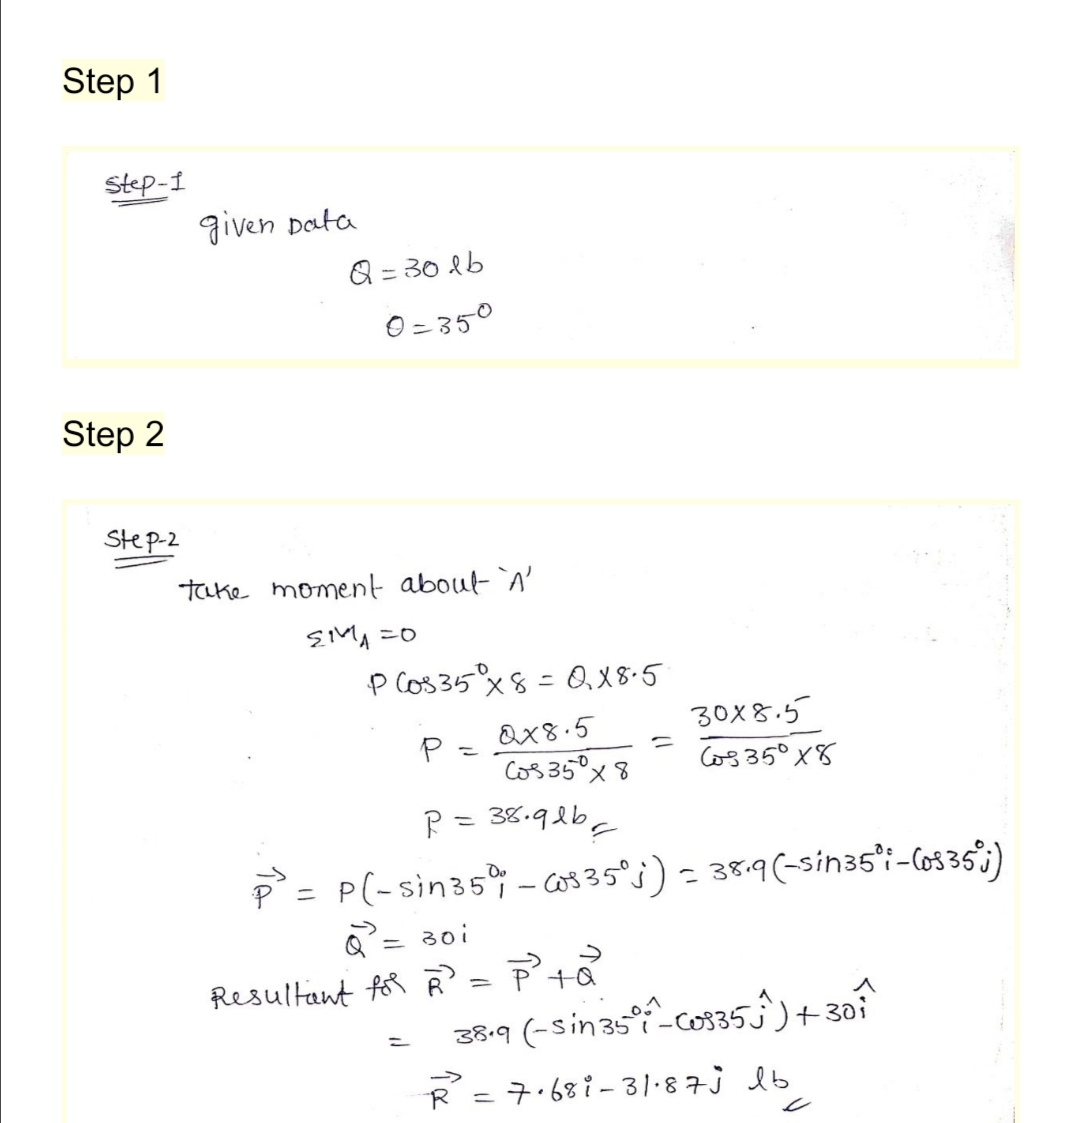 Step 1
Step-1
given Data
Q = 30 lb
θ = 35°
Step 2
Step-2
take moment about 'A'
ΣM_A = 0
P Cos35° × 8 = Q × 8.5
P = Q×8.5 / Cos35°×8 = 30×8.5 / Cos35°×8
P = 38.9 lb
P⃗ = P(-sin35°i - cos35°j) = 38.9(-sin35°i - Cos35°j)
Q⃗ = 30i
Resultant for R⃗ = P⃗ + Q⃗
= 38.9(-sin35°î - cos35ĵ) + 30î
R⃗ = 7.68i - 31.87j lb